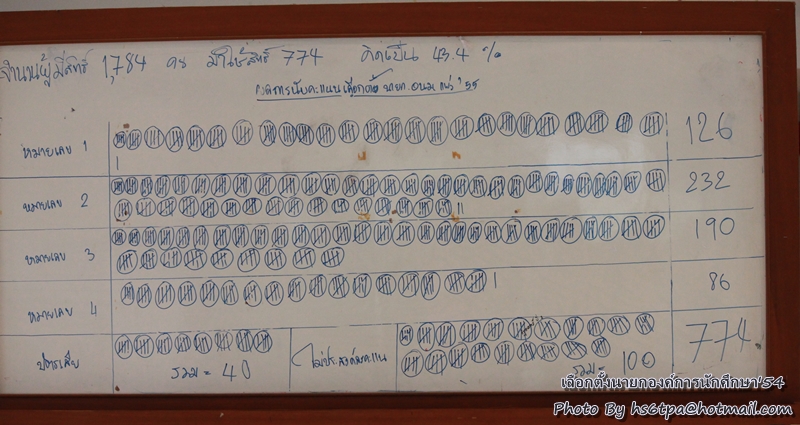 จำนวนผู้มีสิทธิ์ 1,784 คน มาใช้สิทธิ์ 774 คิดเป็น 43.4 %
ผลการนับคะแนนเลือกตั้ง นายก '55
หมายเลข 1 126
หมายเลข 2 232
หมายเลข 3 190
หมายเลข 4 86
บัตรเสีย รวม = 40 ไม่ประสงค์ลงคะแนน รวม = 100 774
เลือกตั้งนายกองค์การนักศึกษา'54
Photo By hs6tpa@hotmail.com